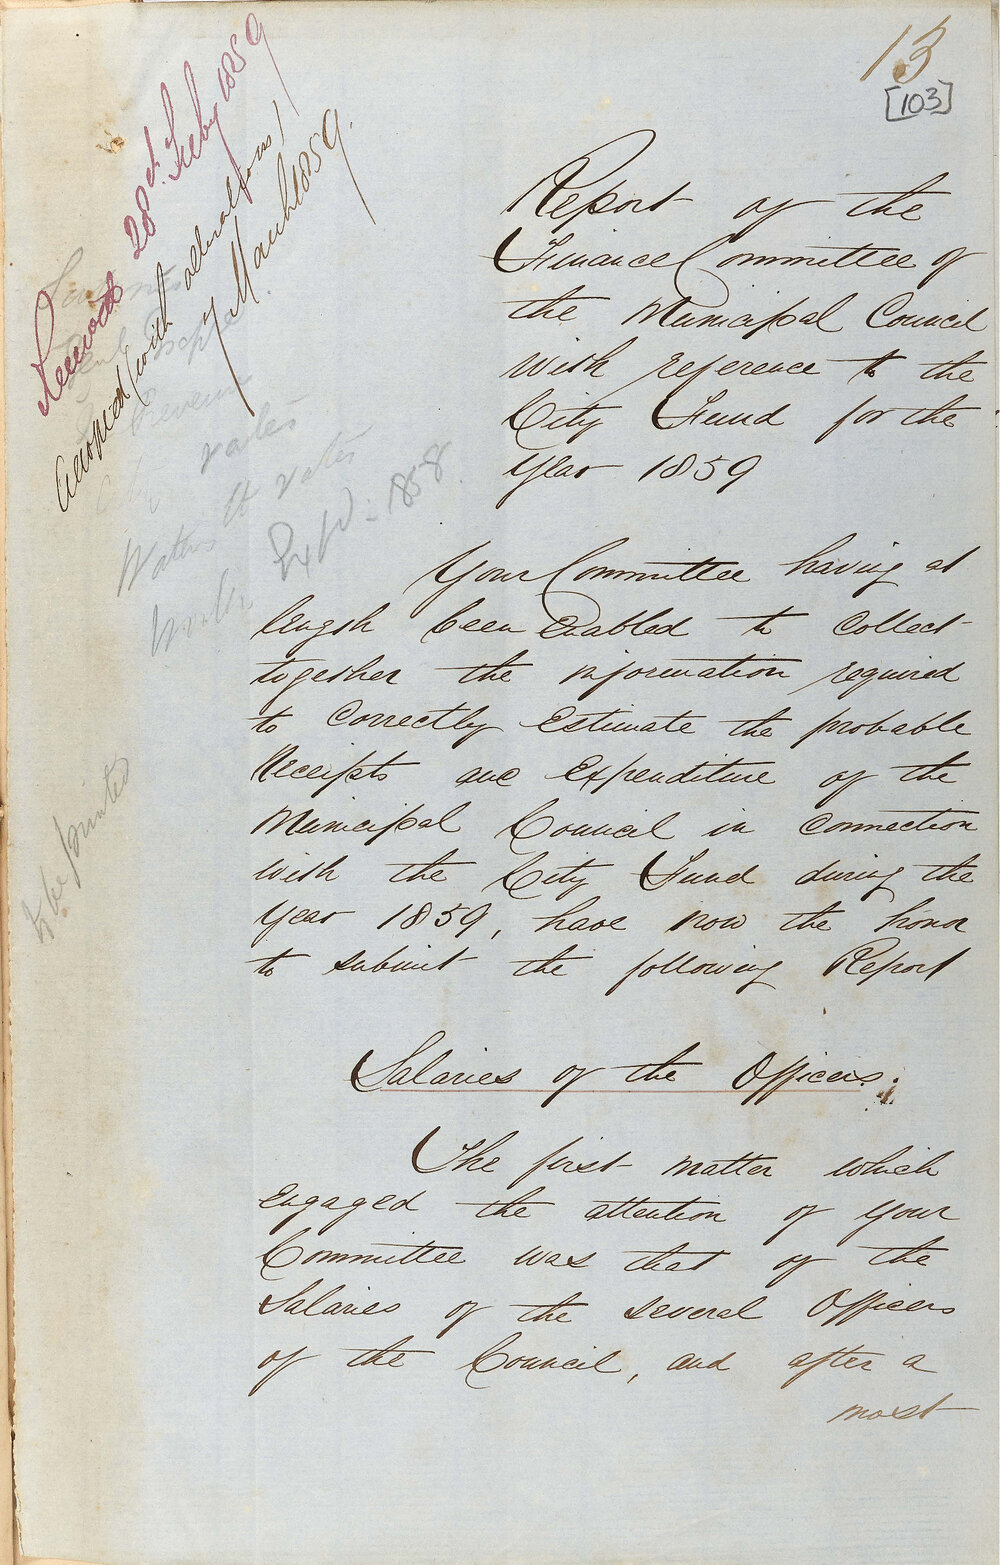 13
[103]
Received 28th Feby 1859
Adopted (with alterations)
7 March 1859.
Report of the
Finance Committee of
the Municipal Council
with reference to the
City Fund for the
Year 1859
rates
Water rates
Expd - 1858
to be printed
Your Committee having at
length been enabled to collect
together the information required
to correctly estimate the probable
Receipts and Expenditure of the
Municipal Council in connection
with the City Fund during the
Year 1859, have now the honor
to submit the following Report
Salaries of the Officers.
The first matter which
engaged the attention of your
Committee was that of the
Salaries of the several Officers
of the Council, and after a
most